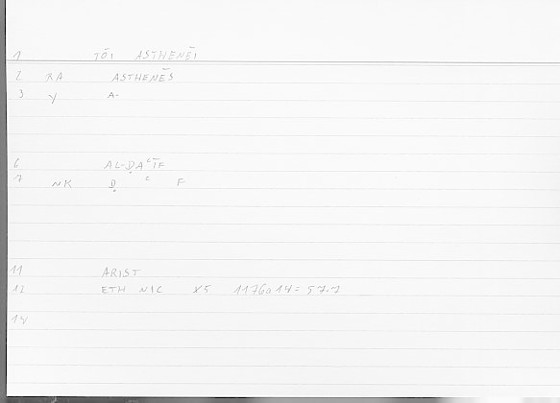 1 TŌI ASTHENEĪ
2 RA ASTHENĒS
3 Y A-
6 AL-ḌAʿĪF
7 NK Ḍ ʿ F
11 ARIST
12 ETH NIC X5 1176a14 = 57.7
14